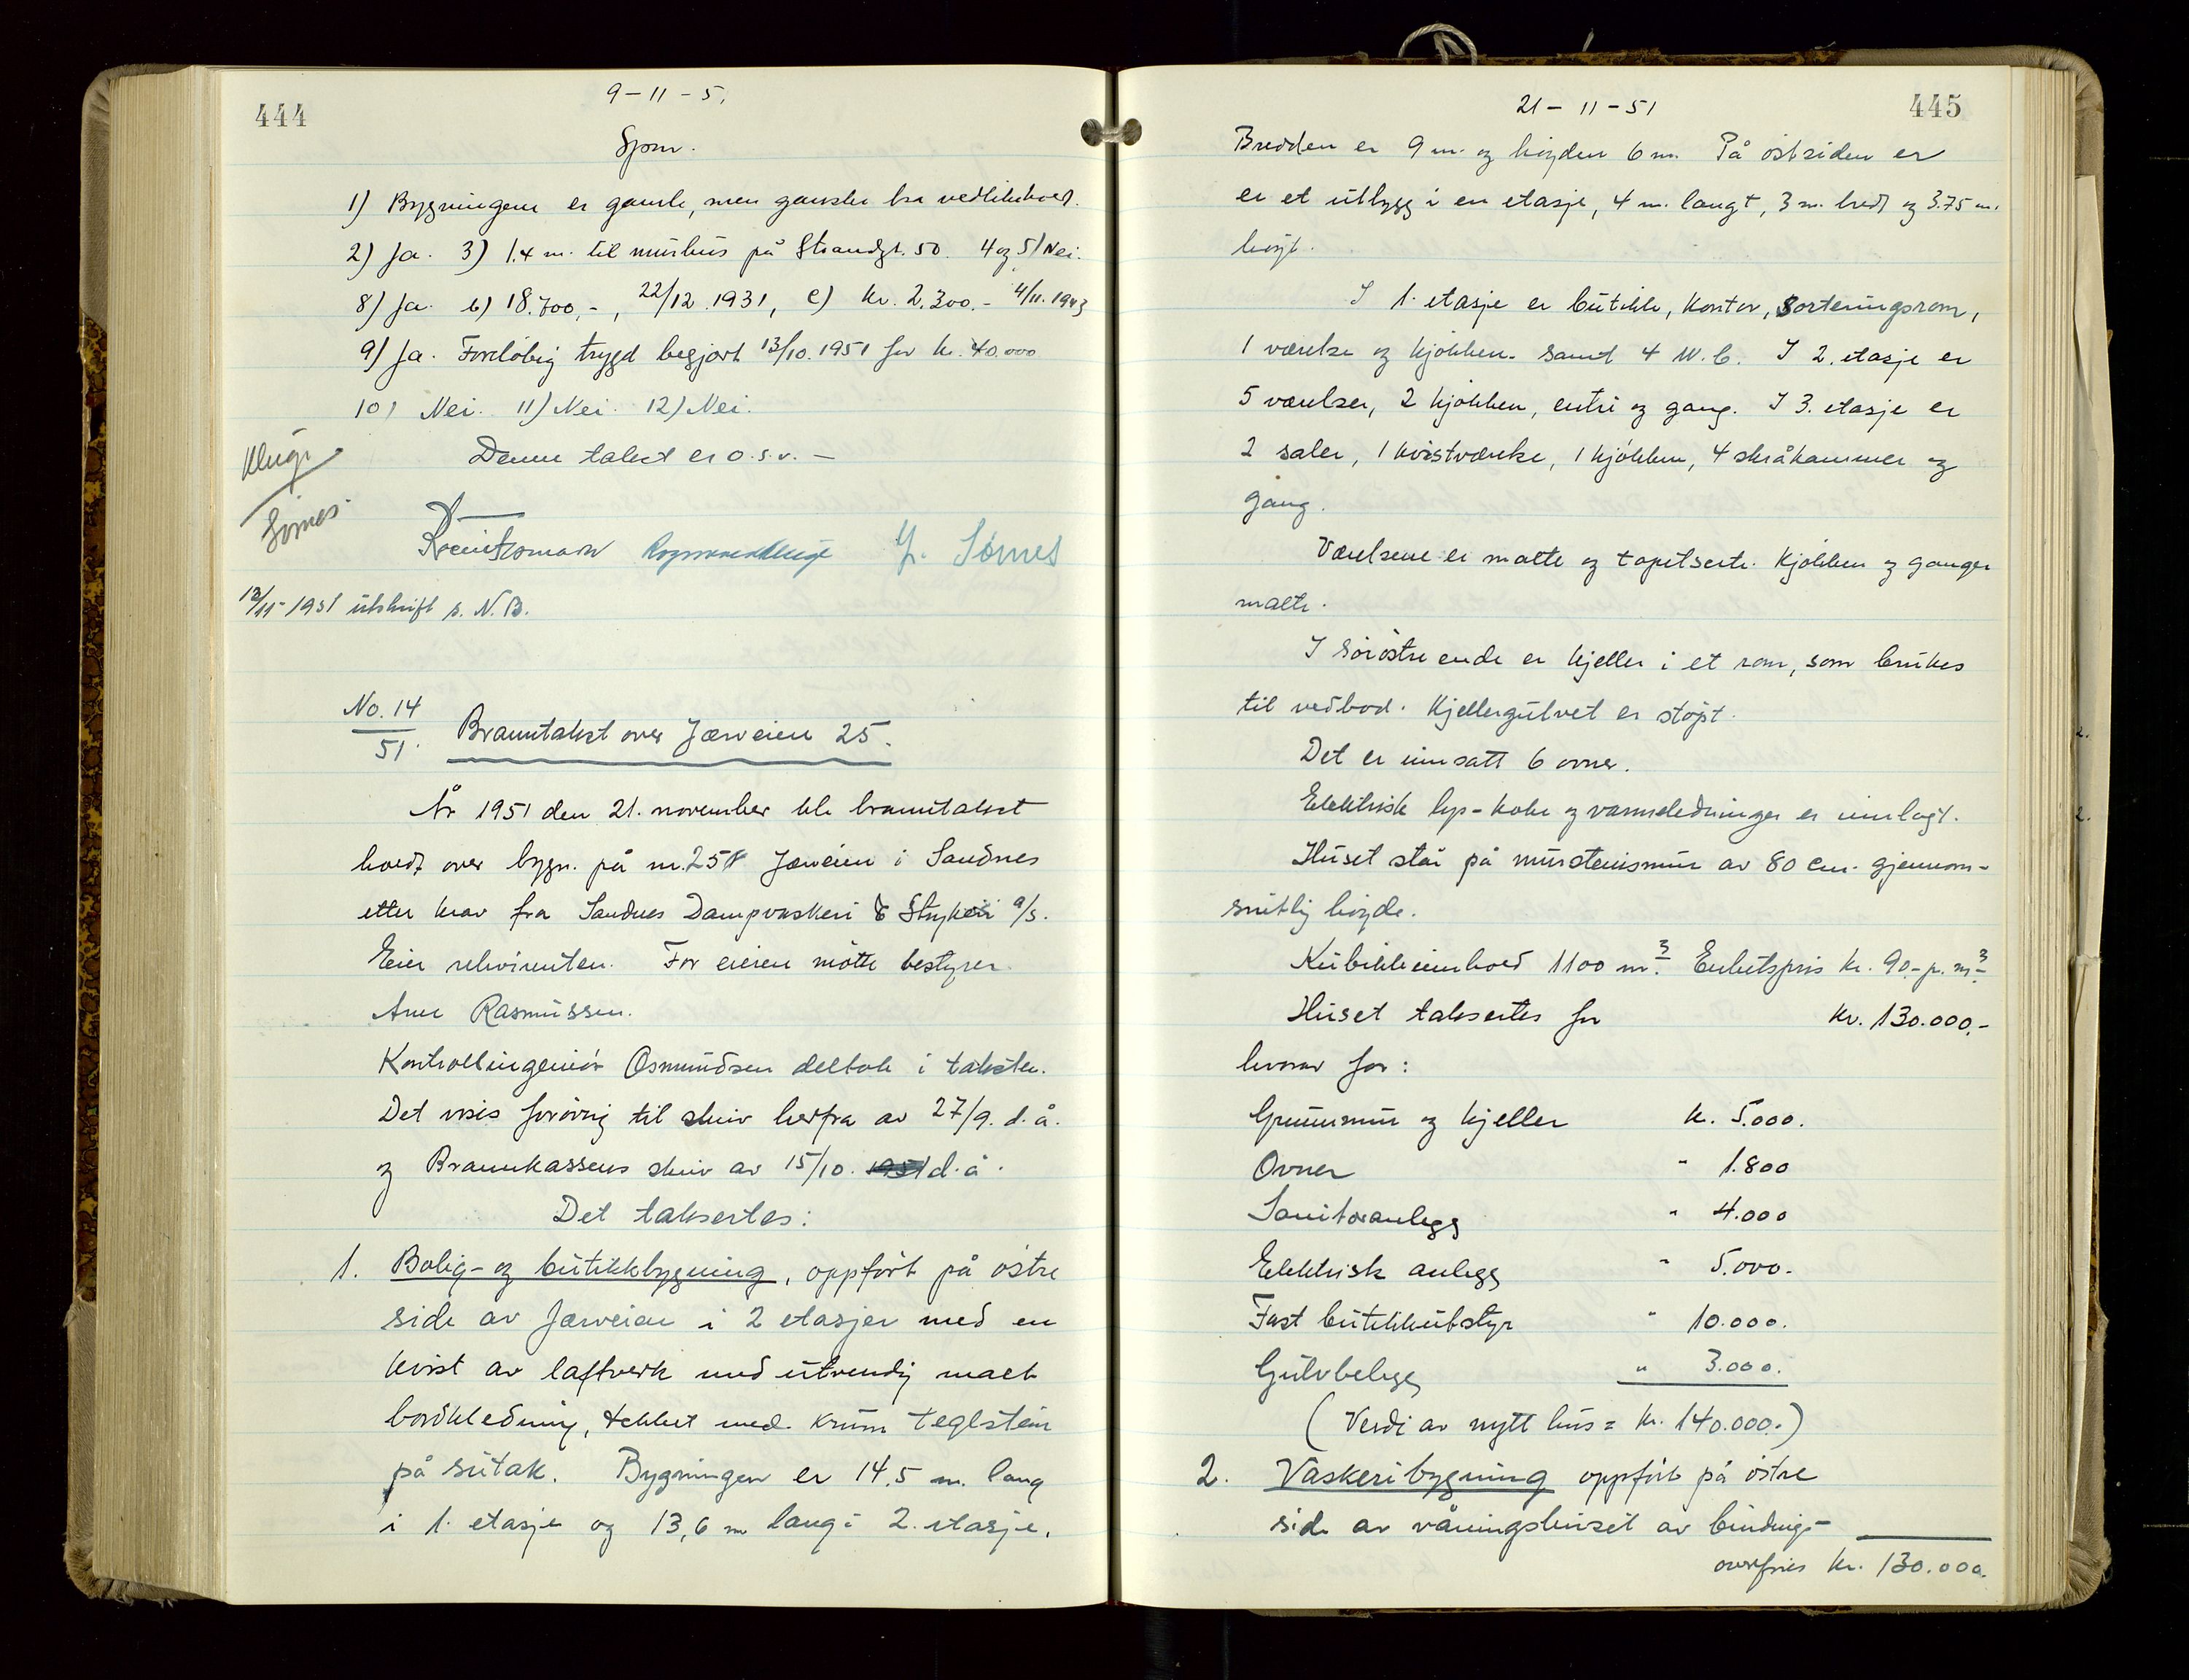 444
9-11-5.
Spm.
1) Bygningen er gamle, men ganske bra vedlikehold.
2) Ja. 3) 1.4 m. til murhus på Strandgt. 50. 4 og 5) Nei.
8) Ja. b) 18.700,-, 22/12.1931, c) kr. 2.300.- 4/11.1943
9) Ja. Foreløbig trygd begjært 13/10.1951 for kr. 40.000
10) Nei. 11) Nei. 12) Nei.
Denne takst er o.s.v. -
Kluge
Sømes
Y. Sømes
13/11-1951 utskrift s. N.B.
No. 14
51.
Branntakst over Jærveien 25.
År 1951 den 21. november ble branntakst
holdt over bygn. på nr. 25 Jærveien i Sandnes
etter krav fra Sandnes Dampvaskeri & Strykeri a/s.
Eier rekvirenten. For eieren møtte bestyrer
Arne Rasmussen.
Kontrollingeniør Osmundsen deltok i taksten.
Det vises forøvrig til skriv herfra av 27/9. d.å.
og Brannkassens skriv av 15/10. 1951 d.å.
Det takseres:
1. Bolig- og butikkbygning, oppført på østre
side av Jærveien i 2 etasjer med en
kvist av laftverk med utvendig malt
bordkledning, tekket med krum teglstein
på sutak. Bygningen er 14,5 m. lang
i 1. etasje og 13,6 m lang i 2. etasje.
21-11-51
445
Bredden er 9 m. og høyden 6 m. På østsiden er
er et utbygg i en etasje, 4 m. langt, 3 m. bredt og 3.75 m.
høyt.
I 1. etasje er butikk, kontor, sorteringsrom,
1 værelse og kjøkken. samt 4 W.C. I 2. etasje er
5 værelser, 2 kjøkken, entre og gang. I 3. etasje er
2 saler, 1 kvistværelse, 1 kjøkken, 4 skråkammer og
gang.
Værelsene er malte og tapetserte. Kjøkken og ganger
malte.
I sørøstre ende er kjeller i et rom, som brukes
til vedbod. Kjellergulvet er støpt.
Det er innsatt 6 ovner.
Elektrisk lys- koke og varmeledninger er innlagt.
Huset står på murstensmur av 80 cm. gjennom-
snitlig høyde.
Kubikkinnhold 1100 m.3 Enhetspris kr. 90.- p. m.3
Huset takseres for kr. 130.000.-
hvorav for:
Grunnmur og kjeller kr. 5.000.
Ovner " 1.800
Sanitæranlegg " 4.000
Elektrisk anlegg " 5.000.
Fast butikkutstyr " 10.000.
Gulvbelegg " 3.000.
(Verdi av nytt hus = kr. 140.000.-)
2. Vaskeribygning oppført på østre
side av våningshuset av bindings-
overføres kr. 130.000.